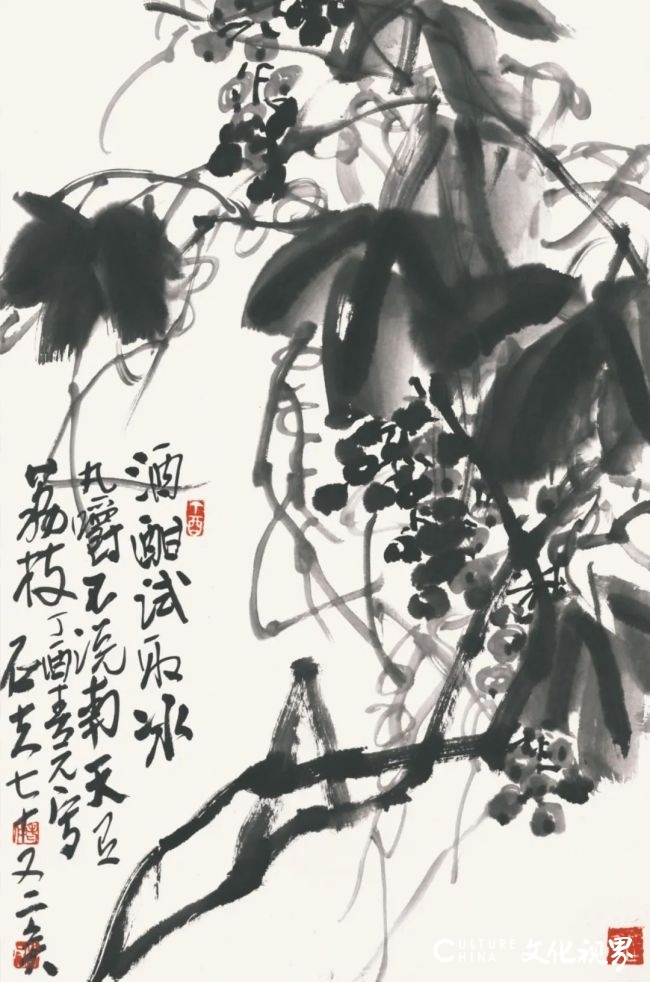 酒酣试取冰
丸嚼不说南天有
荔枝丁酉春元写
石夫七十又二矣
丁酉
CULTURE
CHINA
文化视界